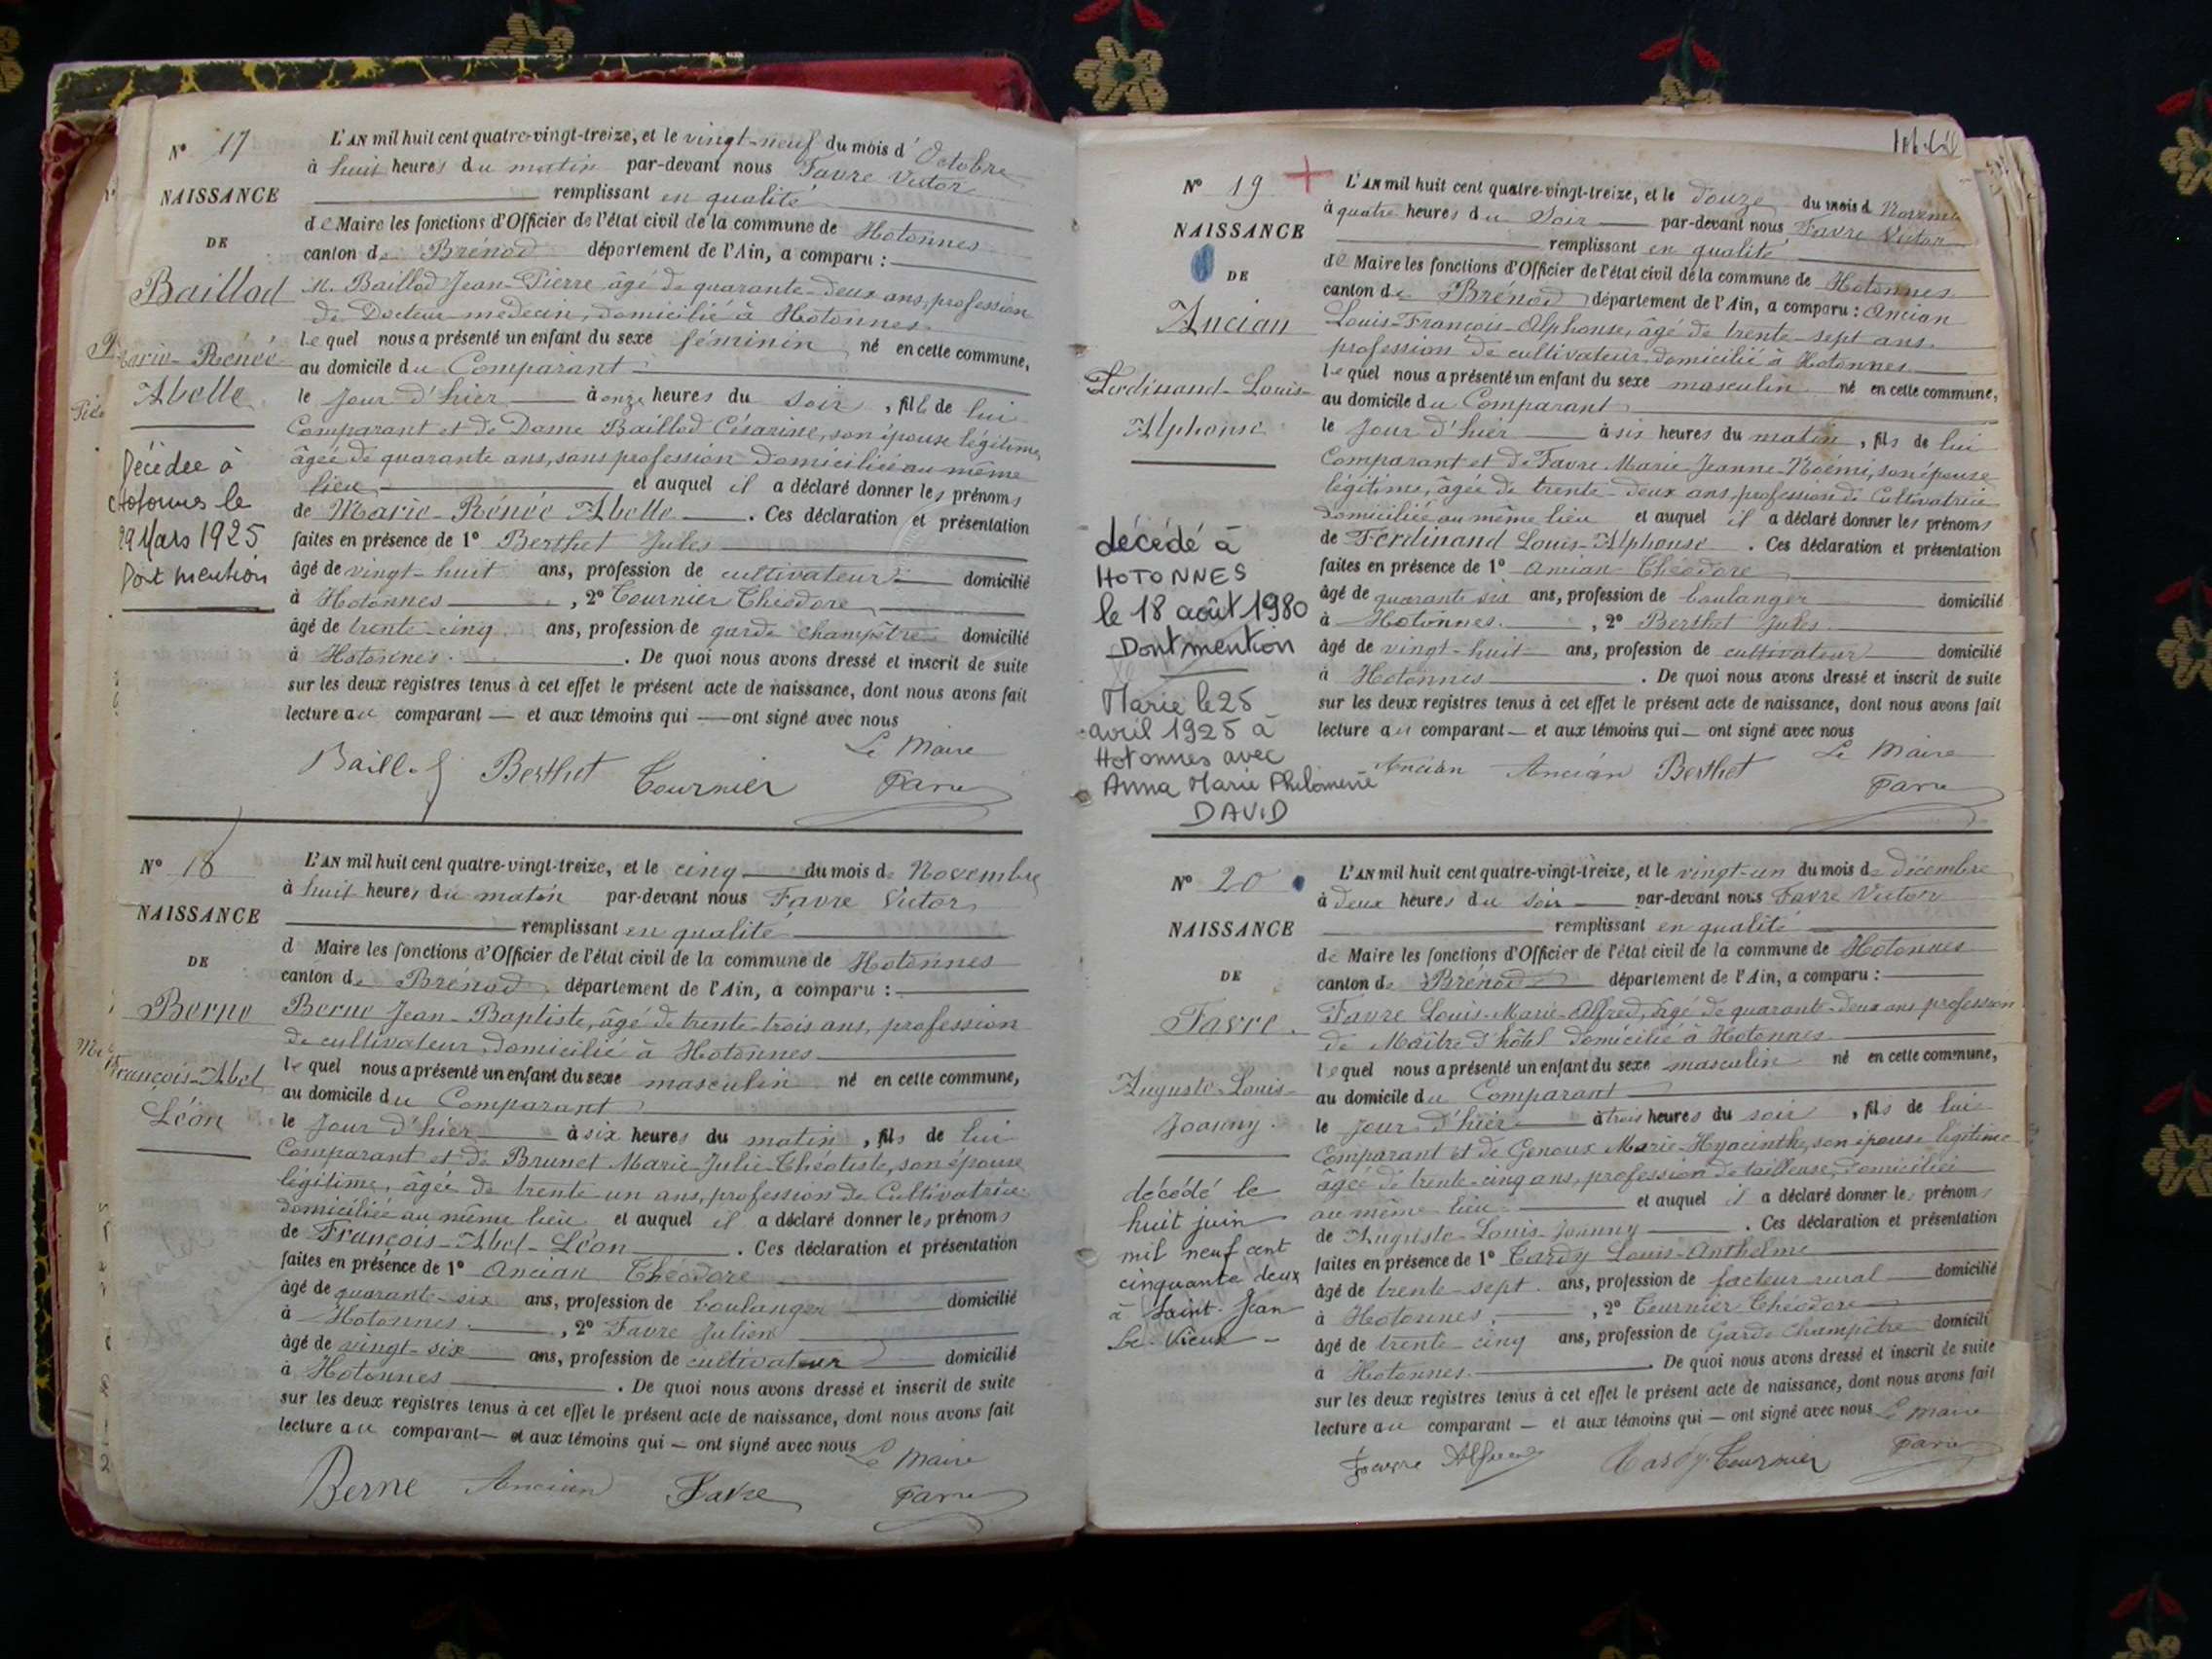 N° 17
NAISSANCE
DE
Baillod
Marie-Rénée
Abelle
Décédée à
Hotonnes le
29 Mars 1925
Dont mention
L'AN mil huit cent quatre-vingt-treize, et le vingt-neuf du mois d'Octobre
à huit heures du matin par-devant nous Favre Victor
remplissant en qualité
de Maire les fonctions d'Officier de l'état civil de la commune de Hotonnes
canton de Brénod département de l'Ain, a comparu :
M. Baillod Jean-Pierre, âgé de quarante-deux ans, profession
de Docteur-médecin, domicilié à Hotonnes
lequel nous a présenté un enfant du sexe féminin né en cette commune,
au domicile du Comparant
le jour d'hier à onze heures du soir, fille de lui
Comparant et de Dame Baillod Césarine, son épouse légitime
âgée de quarante ans, sans profession domiciliée au même
lieu et auquel il a déclaré donner les prénoms
de Marie-Rénée Abelle. Ces déclaration et présentation
faites en présence de 1° Berthet Jules
âgé de vingt-huit ans, profession de cultivateur domicilié
à Hotonnes, 2° Tournier Théodore
âgé de trente-cinq ans, profession de garde champêtre domicilié
à Hotonnes. De quoi nous avons dressé et inscrit de suite
sur les deux registres tenus à cet effet le présent acte de naissance, dont nous avons fait
lecture au comparant — et aux témoins qui — ont signé avec nous
Le Maire
Baillod Berthet Tournier Favre
N° 18
NAISSANCE
DE
Berne
François-Abel
Léon
L'AN mil huit cent quatre-vingt-treize, et le cinq du mois de Novembre
à huit heures du matin par-devant nous Favre Victor
remplissant en qualité
d Maire les fonctions d'Officier de l'état civil de la commune de Hotonnes
canton de Brénod, département de l'Ain, a comparu :
Berne Jean-Baptiste, âgé de trente-trois ans, profession
de cultivateur, domicilié à Hotonnes
lequel nous a présenté un enfant du sexe masculin né en cette commune,
au domicile du Comparant
le jour d'hier à six heures du matin, fils de lui
Comparant et de Brunet Marie-Julie-Théotiste, son épouse
légitime, âgée de trente-un ans, profession de Cultivatrice
domiciliée au même lieu et auquel il a déclaré donner les prénoms
de François-Abel-Léon. Ces déclaration et présentation
faites en présence de 1° Ancian Théodore
âgé de quarante-six ans, profession de boulanger domicilié
à Hotonnes, 2° Favre Julien
âgé de vingt-six ans, profession de cultivateur domicilié
à Hotonnes. De quoi nous avons dressé et inscrit de suite
sur les deux registres tenus à cet effet le présent acte de naissance, dont nous avons fait
lecture au comparant — et aux témoins qui — ont signé avec nous
Le Maire
Berne Ancian Favre Favre
N° 19
NAISSANCE
DE
Ancian
Ferdinand-Louis-
Alphonse
décédé à
HOTONNES
le 18 août 1980
Dont mention
Marié le 25
avril 1925 à
Hotonnes avec
Anna Marie Philomène
DAVID
L'AN mil huit cent quatre-vingt-treize, et le douze du mois d Novemb
à quatre heures du Soir par-devant nous Favre Victor
remplissant en qualité
de Maire les fonctions d'Officier de l'état civil de la commune de Hotonnes
canton de Brénod département de l'Ain, a comparu : Ancian
Louis-François-Alphonse, âgé de trente-sept ans
profession de cultivateur domicilié à Hotonnes
lequel nous a présenté un enfant du sexe masculin né en cette commune,
au domicile du Comparant
le jour d'hier à six heures du matin, fils de lui
Comparant et de Favre Marie-Jeanne-Noémi, son épouse
légitime, âgée de trente-deux ans, profession de Cultivatrice
domiciliée au même lieu et auquel il a déclaré donner les prénoms
de Ferdinand Louis-Alphonse. Ces déclaration et présentation
faites en présence de 1° Ancian Théodore
âgé de quarante six ans, profession de boulanger domicilié
à Hotonnes, 2° Berthet Jules
âgé de vingt-huit ans, profession de cultivateur domicilié
à Hotonnes. De quoi nous avons dressé et inscrit de suite
sur les deux registres tenus à cet effet le présent acte de naissance, dont nous avons fait
lecture au comparant — et aux témoins qui — ont signé avec nous
Le Maire
Ancian Ancian Berthet Favre
N° 20
NAISSANCE
DE
Favre
Auguste-Louis-
Joanny
décédé le
huit juin
mil neuf cent
cinquante deux
à Saint-Jean
le-Vieux
L'AN mil huit cent quatre-vingt-treize, et le vingt-un du mois de décembre
à deux heures du soir par-devant nous Favre Victor
remplissant en qualité
de Maire les fonctions d'Officier de l'état civil de la commune de Hotonnes
canton de Brénod département de l'Ain, a comparu :
Favre Louis-Marie-Alfred, âgé de quarante-deux ans profession
de Maître d'hôtel domicilié à Hotonnes
lequel nous a présenté un enfant du sexe masculin né en cette commune,
au domicile du Comparant
le jour d'hier à trois heures du soir, fils de lui
Comparant et de Genoux Marie-Hyacinthe, son épouse légitime
âgée de trente-cinq ans, profession de tailleuse, domiciliée
au même lieu et auquel il a déclaré donner les prénoms
de Auguste-Louis-Joanny. Ces déclaration et présentation
faites en présence de 1° Cardy Louis-Anthelme
âgé de trente-sept ans, profession de facteur rural domicilié
à Hotonnes, 2° Tournier Théodore
âgé de trente-cinq ans, profession de Garde Champêtre domicili
à Hotonnes. De quoi nous avons dressé et inscrit de suite
sur les deux registres tenus à cet effet le présent acte de naissance, dont nous avons fait
lecture au comparant — et aux témoins qui — ont signé avec nous
Le Maire
Favre Alfred Cardy Tournier Favre